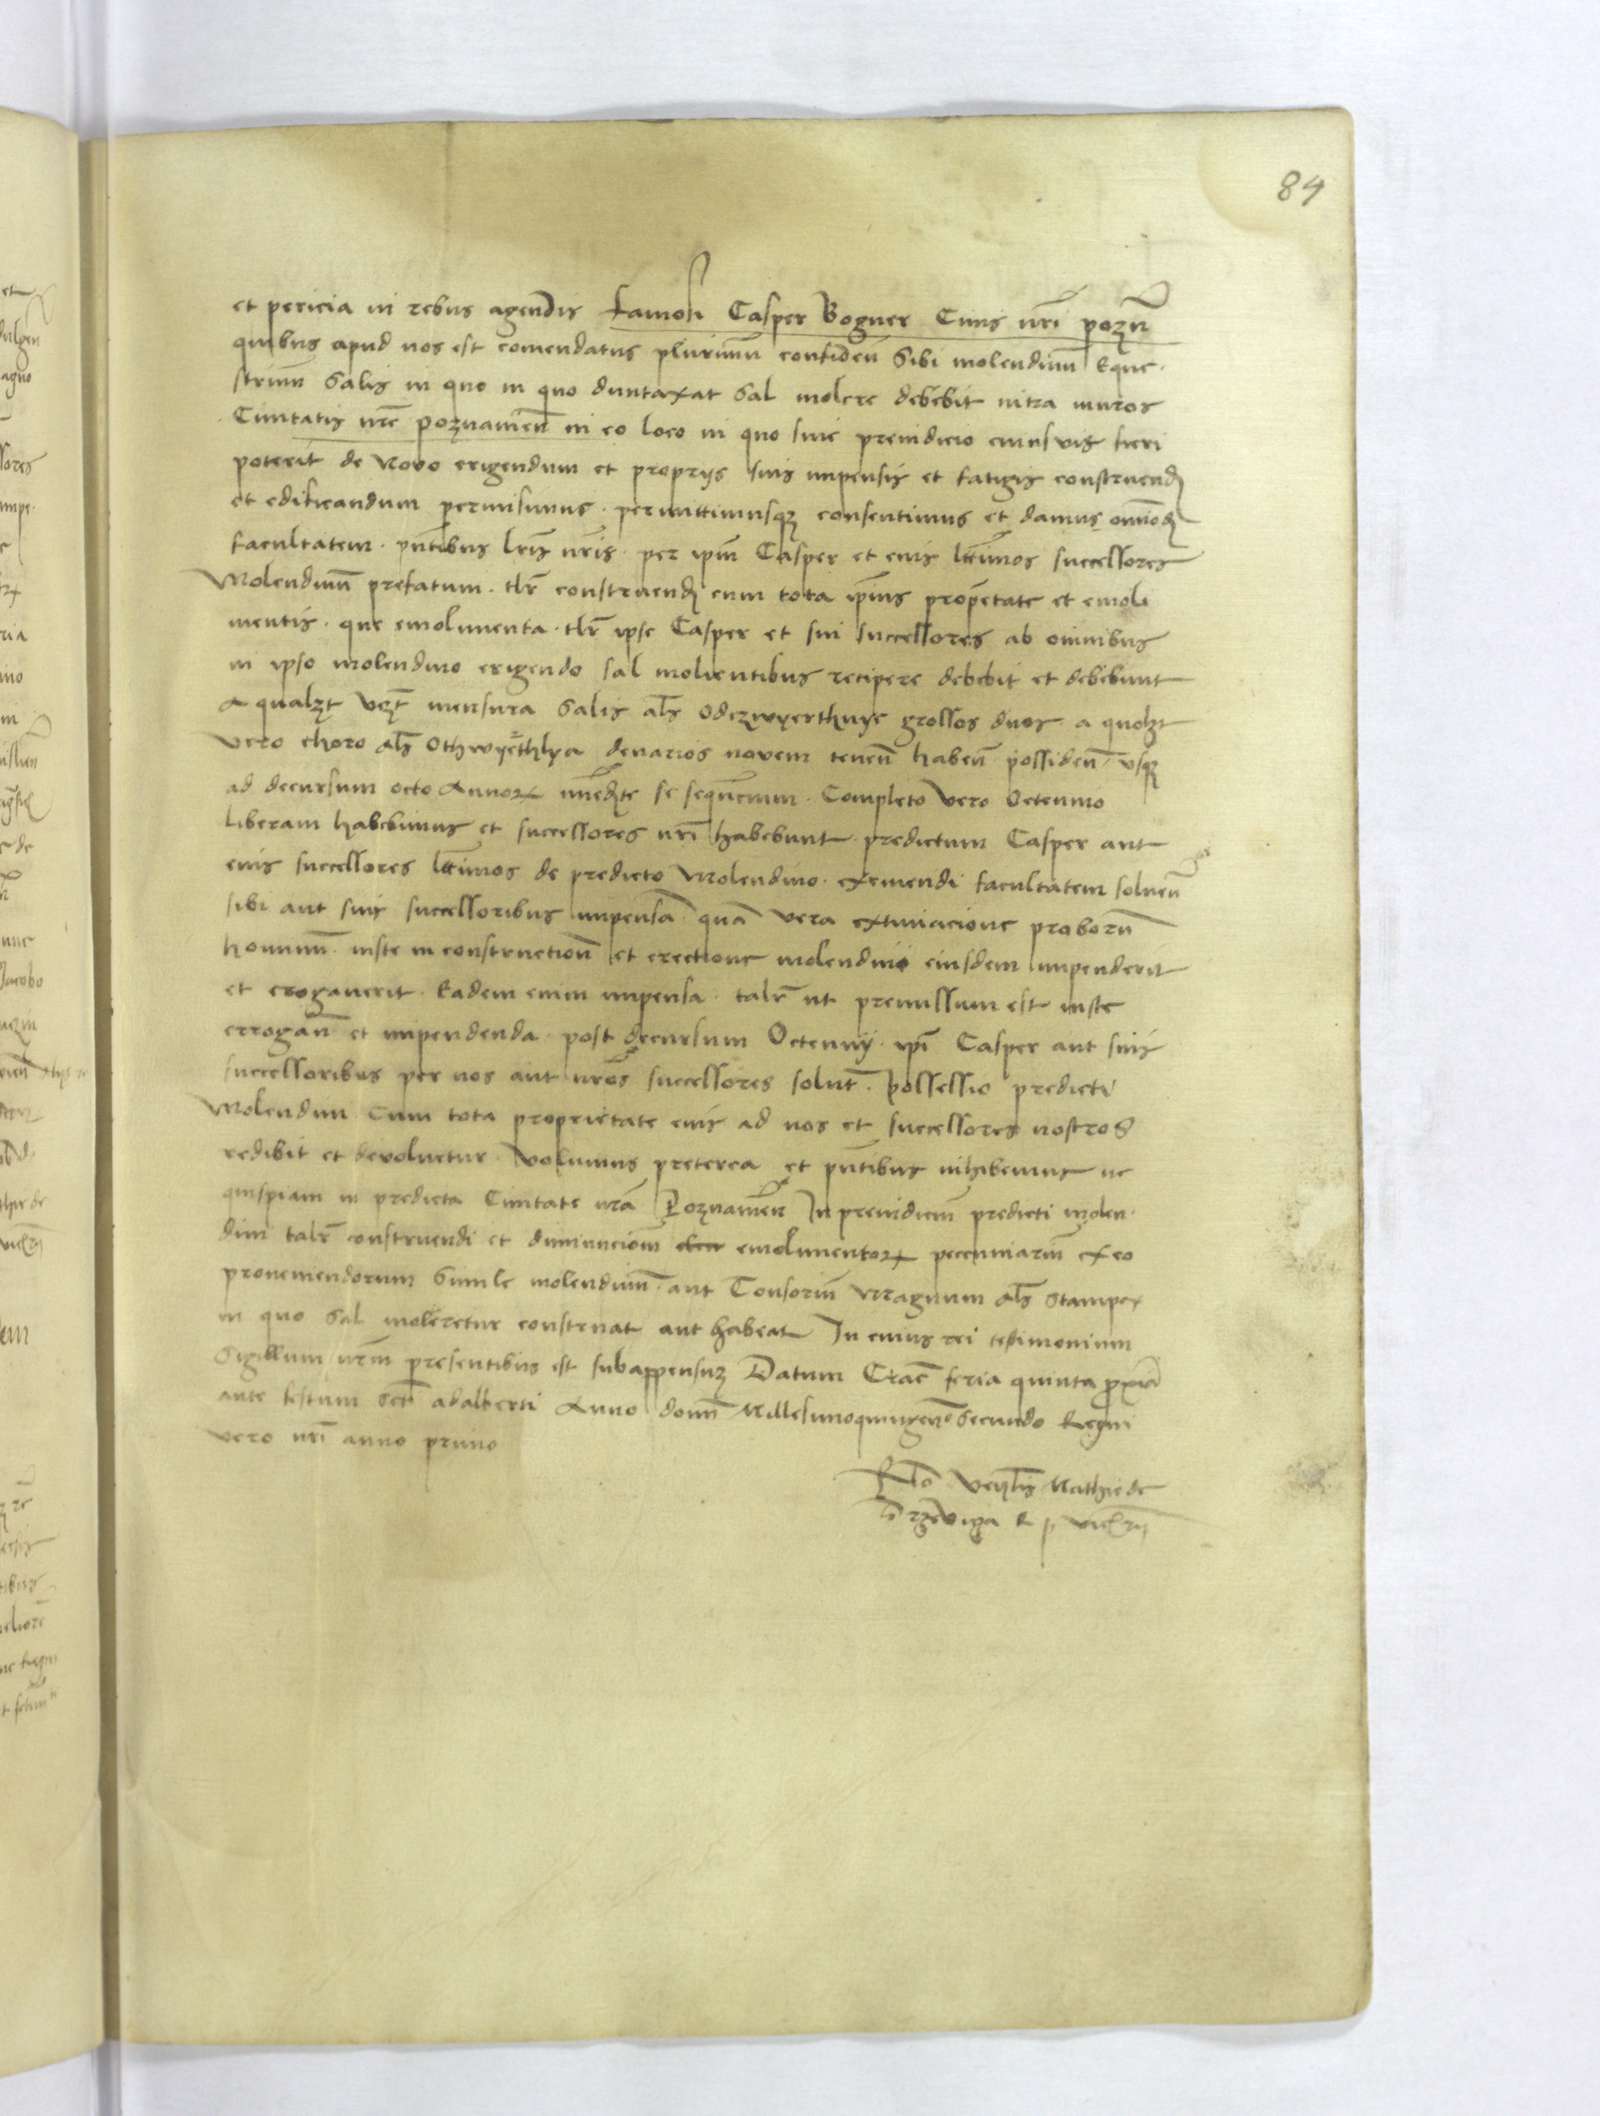 84
et pericia in rebus agendis famosi Casper Bogner Ciuis nri pozn̄
quibus apud nos est comendatus plurimū confiden̄ Sibi molendinū Eque-
strium Salis in quo in quo duntaxat Sal molere debebit intra muros
Ciuitatis nrē poznanien̄ in eo loco in quo sine preiudicio cuiusuis fieri
poterit de Nouo erigendum et proprijs suis impensis et fatigis construend
et edificandum permisimus . permittimusqȝ consentimus et damus omnod
facultatem . pn̄tibus lrīs nrīs . per ipm̄ Casper et eius lttīmos successores
Molendinū prefatum . tlr̄ construend cum tota ipīus propetate et emoli
mentis . que emolumenta . tlr̄ ipse Casper et sui successores ab omnibus
in ipso molendino erigendo sal molientibus recipere debebit et debebunt
A qualȝt vrȝt mensura Salis als̄ Odczwyerthnye grossos duos a quolȝt
vero choro als̄ Othwyerthlya denarios novem tenen̄ haben̄ possiden̄ vsqȝ
ad decursum octo Annoꝝ immedte se sequencium . Completo vero Octennio
liberam habebimus et successores nrī habebunt predictum Casper aut
eius successores lttīmos de predicto Molendino . exemendi facultatem soluen̄
sibi aut suis successoribus impensā quā vera extimacione proborū
hominū . iuste in construction̄ et erectione molendini eiusdem impenderit
et erogauerit . Eadem enim impensa . talr̄ ut premissum est iuste
errogan̄ et impendenda . post decursum Octennij . ipī Casper aut suis
successoribus per nos aut nrōs successores solut̄ . possessio predicti
Molendini Cum tota proprietate eius ad nos et successores nostros
redibit et devoluetur . Volumus preterea et pn̄tibus inhibemus ne
quispiam in predicta Ciuitate nrā Poznanien̄ In preiudicm̄ predicti molen-
dini talr̄ construendi et diminucionm̄ emolumentoꝝ pecuniarm̄ ex eo
proueniendorum Simile molendinū . aut Tonsoriū Magnum als̄ Stampex
in quo Sal moleretur construat aut habeat In cuius rei testimonium
Sigillum nrm̄ presentibus est subappensuȝ Datum Crac̄ feria quinta pxīa
ante festum Sctī adalberti Anno domī Millesimoquingen̄o Secundo Regni
vero nrī anno primo
Rlō Venlīs Mathie de
Drzewiça R p vicecrij